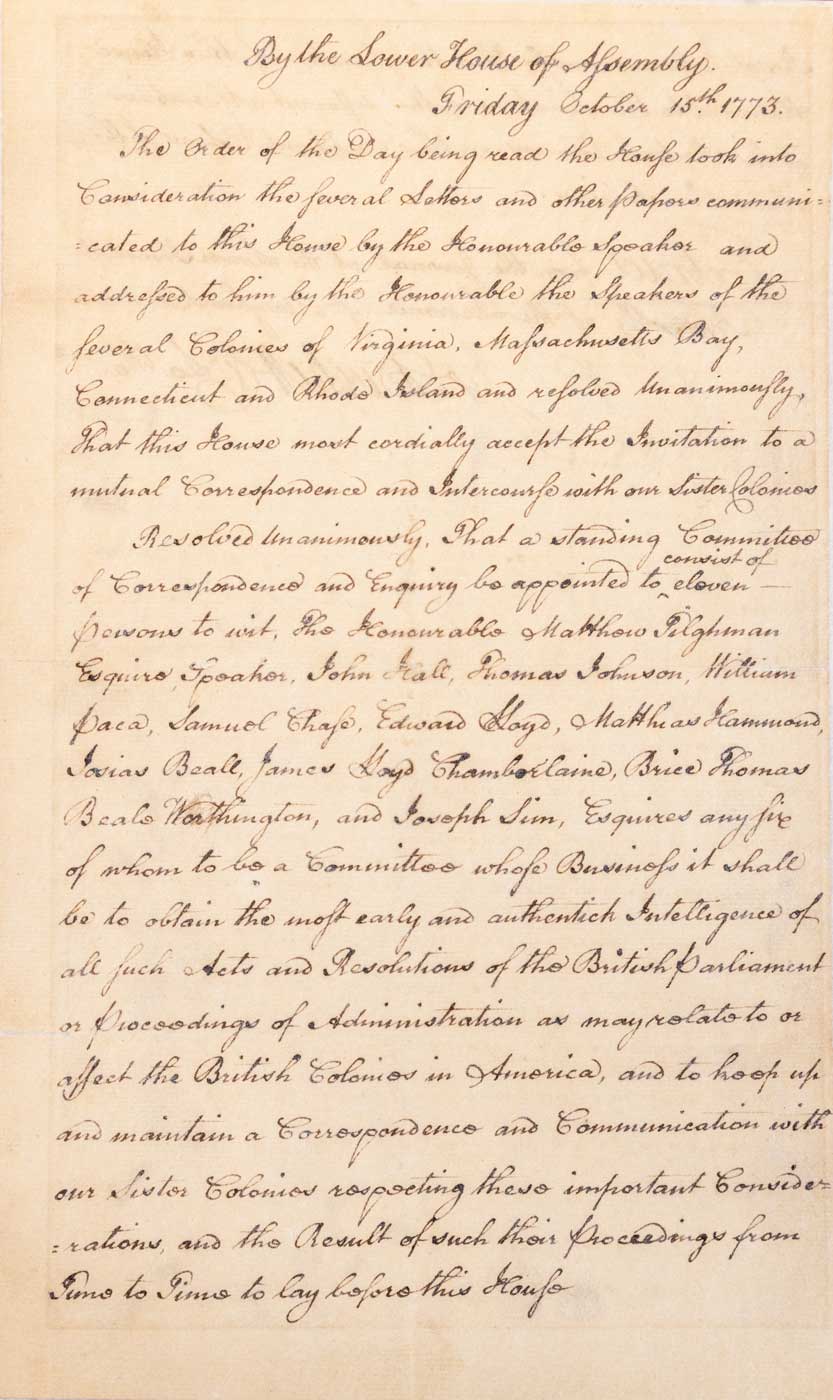 By the Lower House of Assembly.
Friday October 15.th 1773.
The Order of the Day being read the House took into
Consideration the several Letters and other Papers communi=
=cated to this House by the Honourable Speaker and
addressed to him by the Honourable the Speakers of the
several Colonies of Virginia, Massachusetts Bay,
Connecticut and Rhode Island and resolved Unanimously,
That this House most cordially accept the Invitation to a
mutual Correspondence and Intercourse with our Sister Colonies
Resolved Unanimously, That a standing Committee
consist of
of Correspondence and Enquiry be appointed to ‸ eleven —
Persons to wit, The Honourable Matthew Tilghman
Esquire, Speaker, John Hall, Thomas Johnson, William
Paca, Samuel Chase, Edward Lloyd, Matthias Hammond,
Josias Beall, James Lloyd Chamberlaine, Brice Thomas
Beale Worthington, and Joseph Sim, Esquires any six
of whom to be a Committee whose Business it shall
be to obtain the most early and authentick Intelligence of
all such Acts and Resolutions of the British Parliament
or Proceedings of Administration as may relate to or
affect the British Colonies in America, and to keep up
and maintain a Correspondence and Communication with
our Sister Colonies respecting these important Consider=
=rations, and the Result of such their Proceedings from
Time to Time to lay before this House